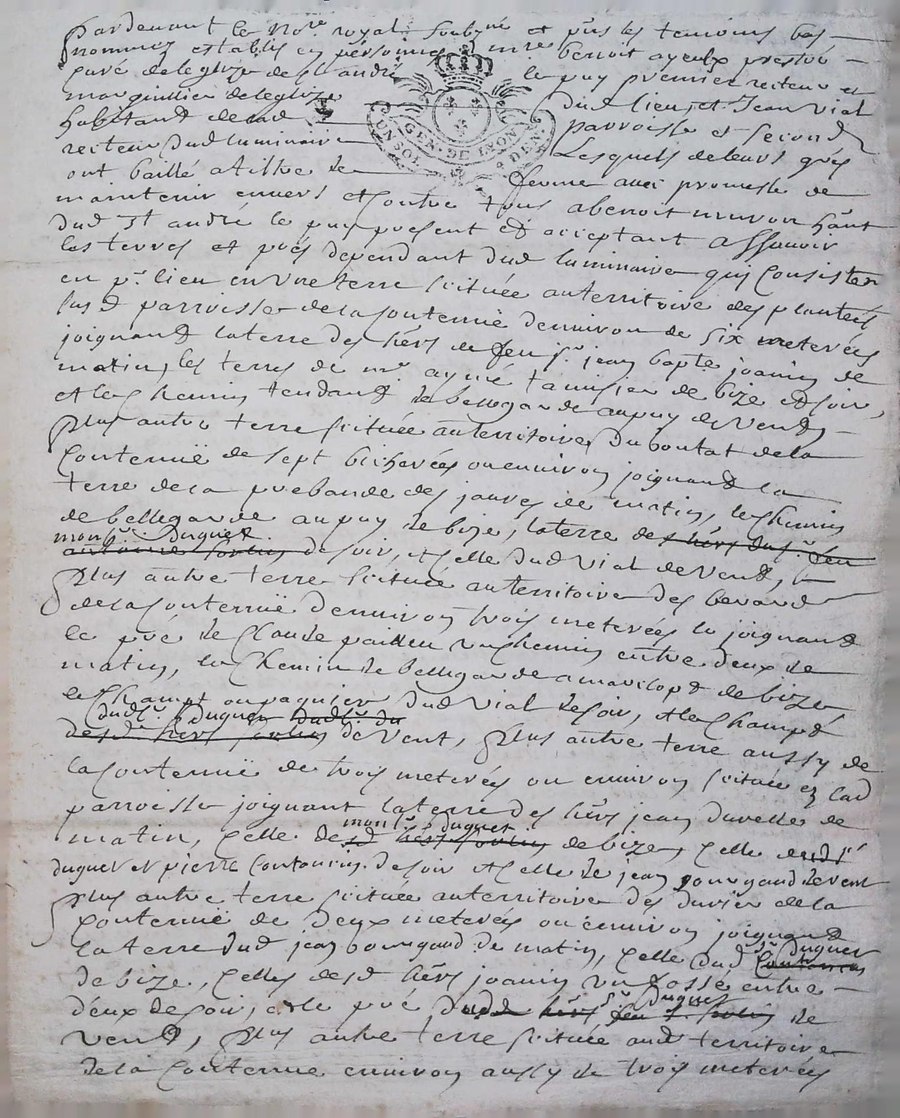 Pardevant le No.re royal soubné et pñts les temoins bas
nommes establis en personnes mre benoit ayeulx prestre
curé deleglize de St andré le puy premier recteur et
marguillier deleglize dud lieu, et Jean vial
habitant de lad parroisse et second
recteur dud luminaire Lesquels de leurs grés
ont baillé a tiltre de ferme avec promesse de
maintenir envers et contre tous a benoit muron hãnt
dud St andré le puy present et acceptant assavoir
les terres et prés dependant dud luminaire qui consistent
en pr lieu en une terre scituée au territoire des plantées
susd parroisse de la contenuë denviron de six meterées
joignand la terre des hérs de feu sr jean bapte joanin de
matin, les terres de mr aymé tamisier de bize et soir,
et le chemin tendand de bellegarde au puy de vend,
plus autre terre scituée au territoire du boutat de la
contenuë de sept bicherées ou environ joignand la
terre de la prebande des jaures de matin, le chemin
de bellegarde au puy de bize, la terre des hérs du sr feu
mon sr duguet
antoine de soir, et celle dud vial de vend,
plus autre terre scituée au territoire des bevard
de la contenuë denviron trois meterées joignand
le pré de Claude un chemin entre deux de
matin, le chemin de bellegarde a de bize
le champt ou paquier dud vial de soir, et le champ d
dud sr duguet dud sr du
desd hers de vent, plus autre terre aussy de
la contenuë de trois meterées ou environ scituée en lad
parroisse joignant la terre des hérs jean duvelle de
mon sr duguet
matin, celle desd hers de bize, celle dud sr
duguet et pierre Coutourin de soir et celle de jean bourgand de vent
plus autre terre scituée au territoire des de la
contenuë de deux meterées ou environ joignand
sr duguet
la terre dud jean bourgand de matin, celle dud
de bize, celles desd hérs joanin un fossé entre
sr duguet
deux de soir, et le pré dud hérs feu sr de
vend, plus autre terre scituée aud territoire
de la contenue environ aussy de trois meterées
GEN. DE LYON
UN SOL DEN.